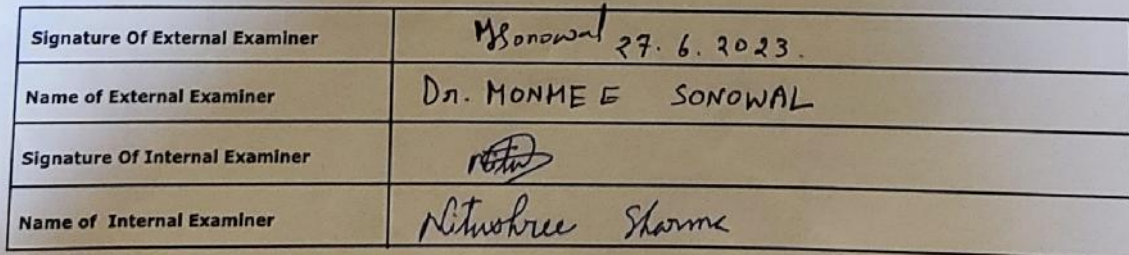 Signature Of External Examiner MSonowal 27. 6. 2023.
Name of External Examiner Dr. MONMEE SONOWAL
Signature Of Internal Examiner
Name of Internal Examiner Nitushree Sharma